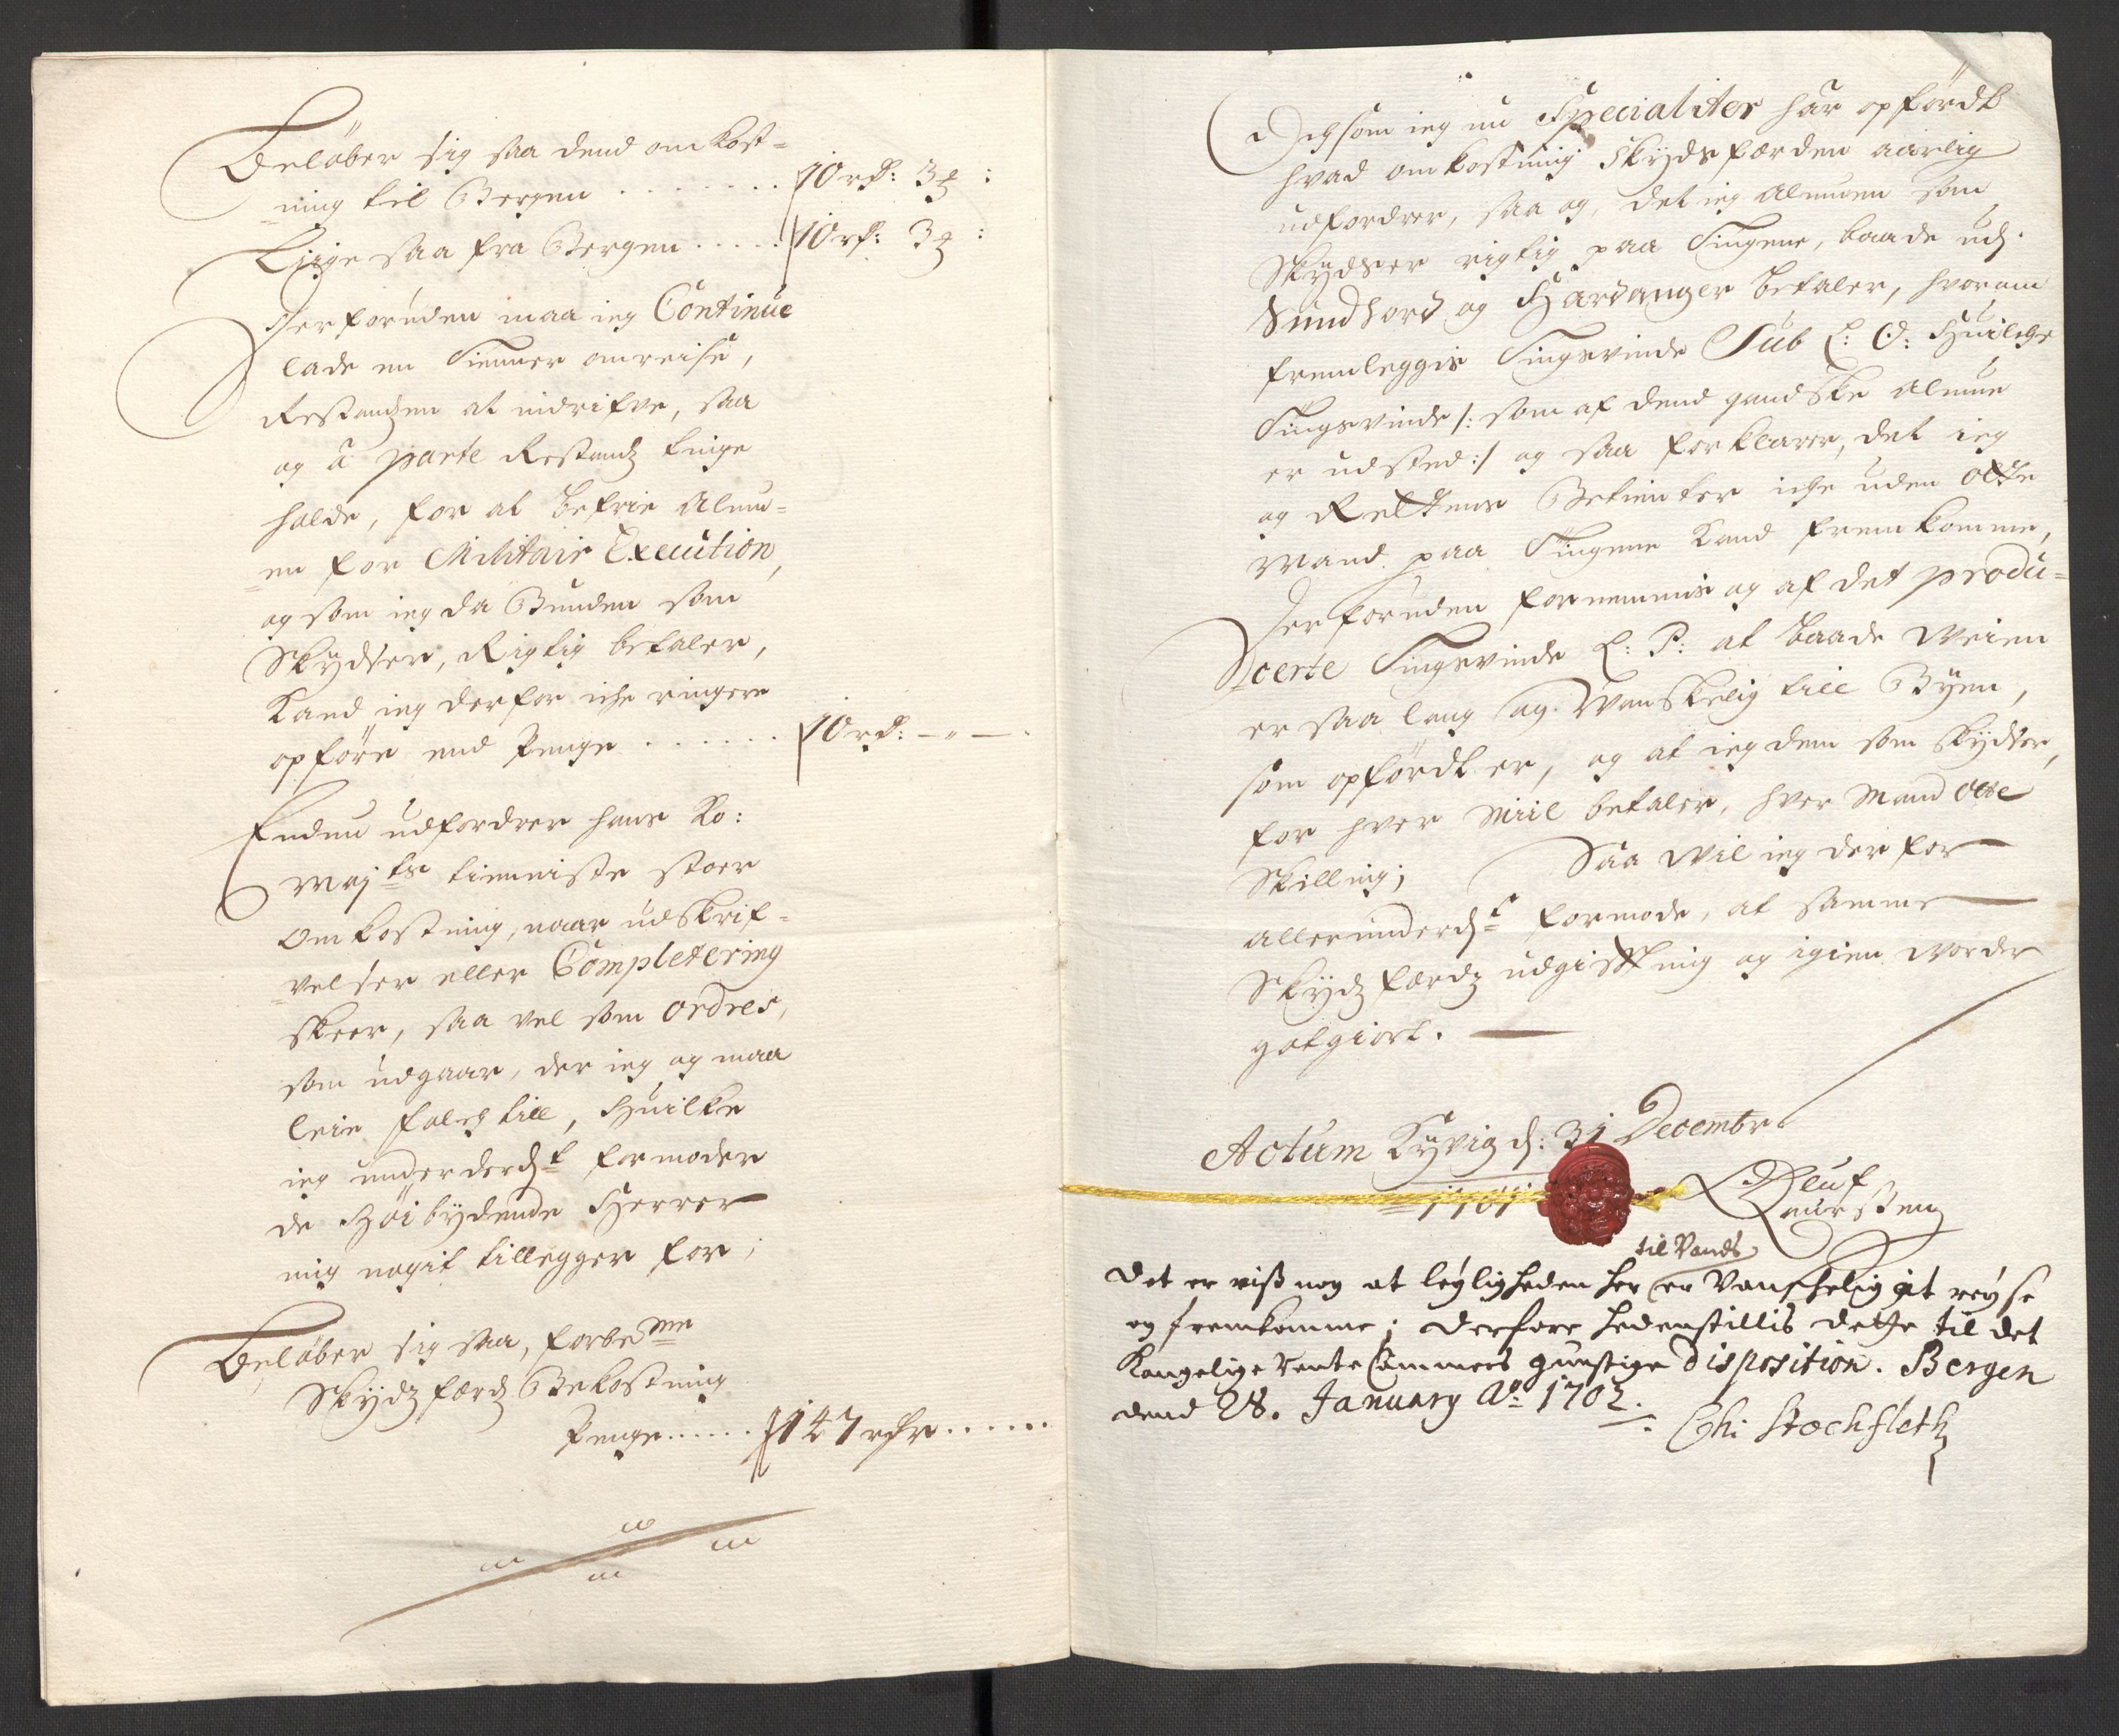 Beløber sig saa dend omkost=
=ning til Bergen . . . . . . . 10 rd: 3 ℔ :
Liige saa fra Bergen . . . . . 10 rd: 3 ℔ :
Der foruden maa ieg Continue
lade en Tienner omreise,
Restandzen at indrifve, saa
og à parte Restandz tinge
holde, for at befrie Almu=
=en for Militair Execution,
og som ieg da Bunden som
Skydser, Rigtig betaler,
Kand ieg derfor iche ringere
opføre end Penge . . . . . . 10 rd: — „ —
Endnu udfordrer hans Ko:
May:ts tienniste stoer
Omkostning, naar udskrif=
=velser eller Completering
skeer, saa vel som ordres,
som udgaar, der ieg og maa
leie folch till, Huilke
ieg underd:st formoder
de Høibydende Herrer
mig nogit tillegger for;
Beløber sig saa, forbe:mte
Skydz færdz Bekostning
Penge . . . . . 147 rdr . . . . . .
Och som ieg nu Specialiter har opførdt
hvad omkostning Skydsfærden aarlig
udfordrer, saa og, det ieg Almuen som
Skydser rigtig paa Tingene, baade udj
Sundhord og Hardanger betaler, hvorom
fremleggis Tingsvinde Sub L: O: Huilche
Tingsvinde /: som af dend gandske Almue
er udsted :/ og saa forklarer, det ieg
og Rettens Betienter iche uden Otte
Mand paa Tingene Kand fremkomme,
Der foruden fornemmis og af det produ=
=certe Tingsvinde L: P: at baade Veien
er saa lang og Vanskelig till Byen,
som opførdt er, og at ieg dem som skydser,
for hver Miil betaler, hver Mand Otte
Skilling; Saa Vil ieg derfor
allerunderd:st formode, at samme
Skydzfærdz udgiftt mig og igien vorder
gotgiort.
Actum Kyvig d: 31 Decembr
1701
Oluf
Laurssen
til Vands
Det er vist nog at leyligheden her er Vanschelig at reyse
og fremkomme; derfore hedenstillis dette til det
Kongelige Rente Cammers gunstige disposition. Bergen
dend 28. January A:o 1702.
Chr: Stockfleth